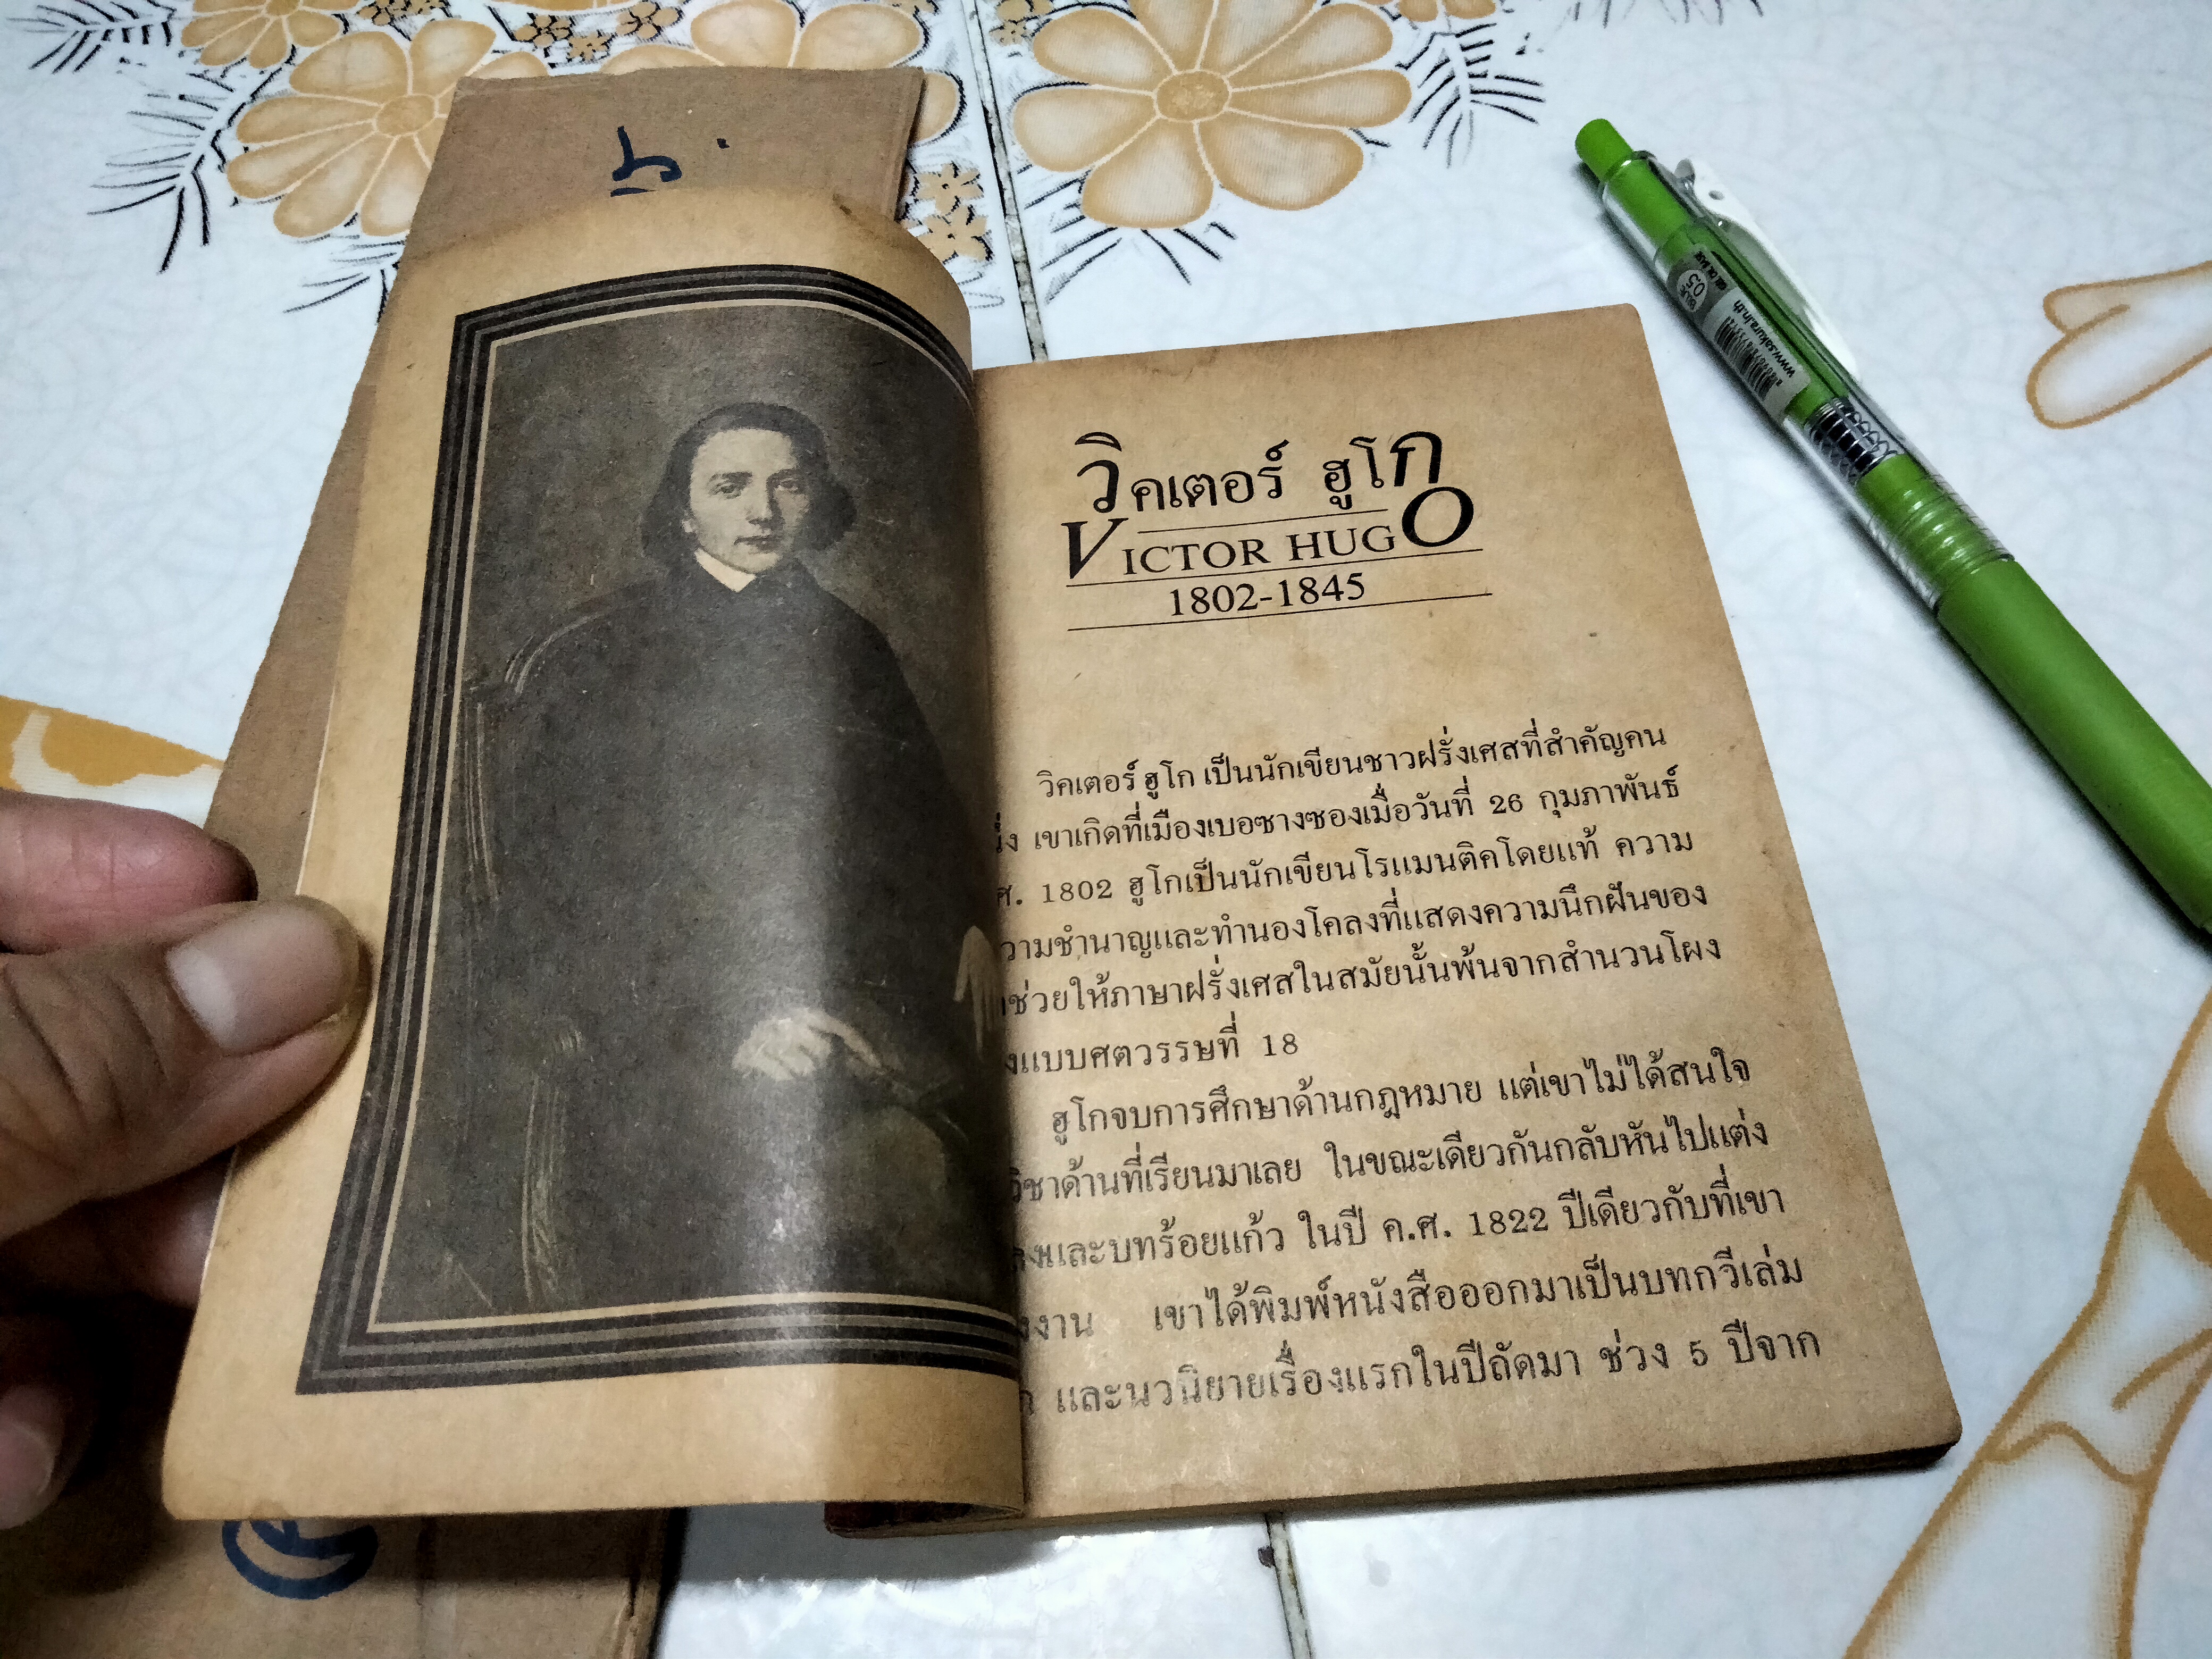 วิคเตอร์ ฮูโก
VICTOR HUGO
1802-1845
วิคเตอร์ ฮูโก เป็นนักเขียนชาวฝรั่งเศสที่สำคัญคน
เขาเกิดที่เมืองเบอซางซองเมื่อวันที่ 26 กุมภาพันธ์
ศ. 1802 ฮูโกเป็นนักเขียนโรแมนติคโดยแท้ ความ
วามชำนาญและทำนองโคลงที่แสดงความนึกฝันของ
ช่วยให้ภาษาฝรั่งเศสในสมัยนั้นพ้นจากสำนวนโผง
แบบศตวรรษที่ 18
ฮูโกจบการศึกษาด้านกฎหมาย แต่เขาไม่ได้สนใจ
วิชาด้านที่เรียนมาเลย ในขณะเดียวกันกลับหันไปแต่ง
และบทร้อยแก้ว ในปี ค.ศ. 1822 ปีเดียวกับที่เขา
งาน เขาได้พิมพ์หนังสือออกมาเป็นบทกวีเล่ม
และนวนิยายเรื่องแรกในปีถัดมา ช่วง 5 ปีจาก
www.sakura.in.th
0.5